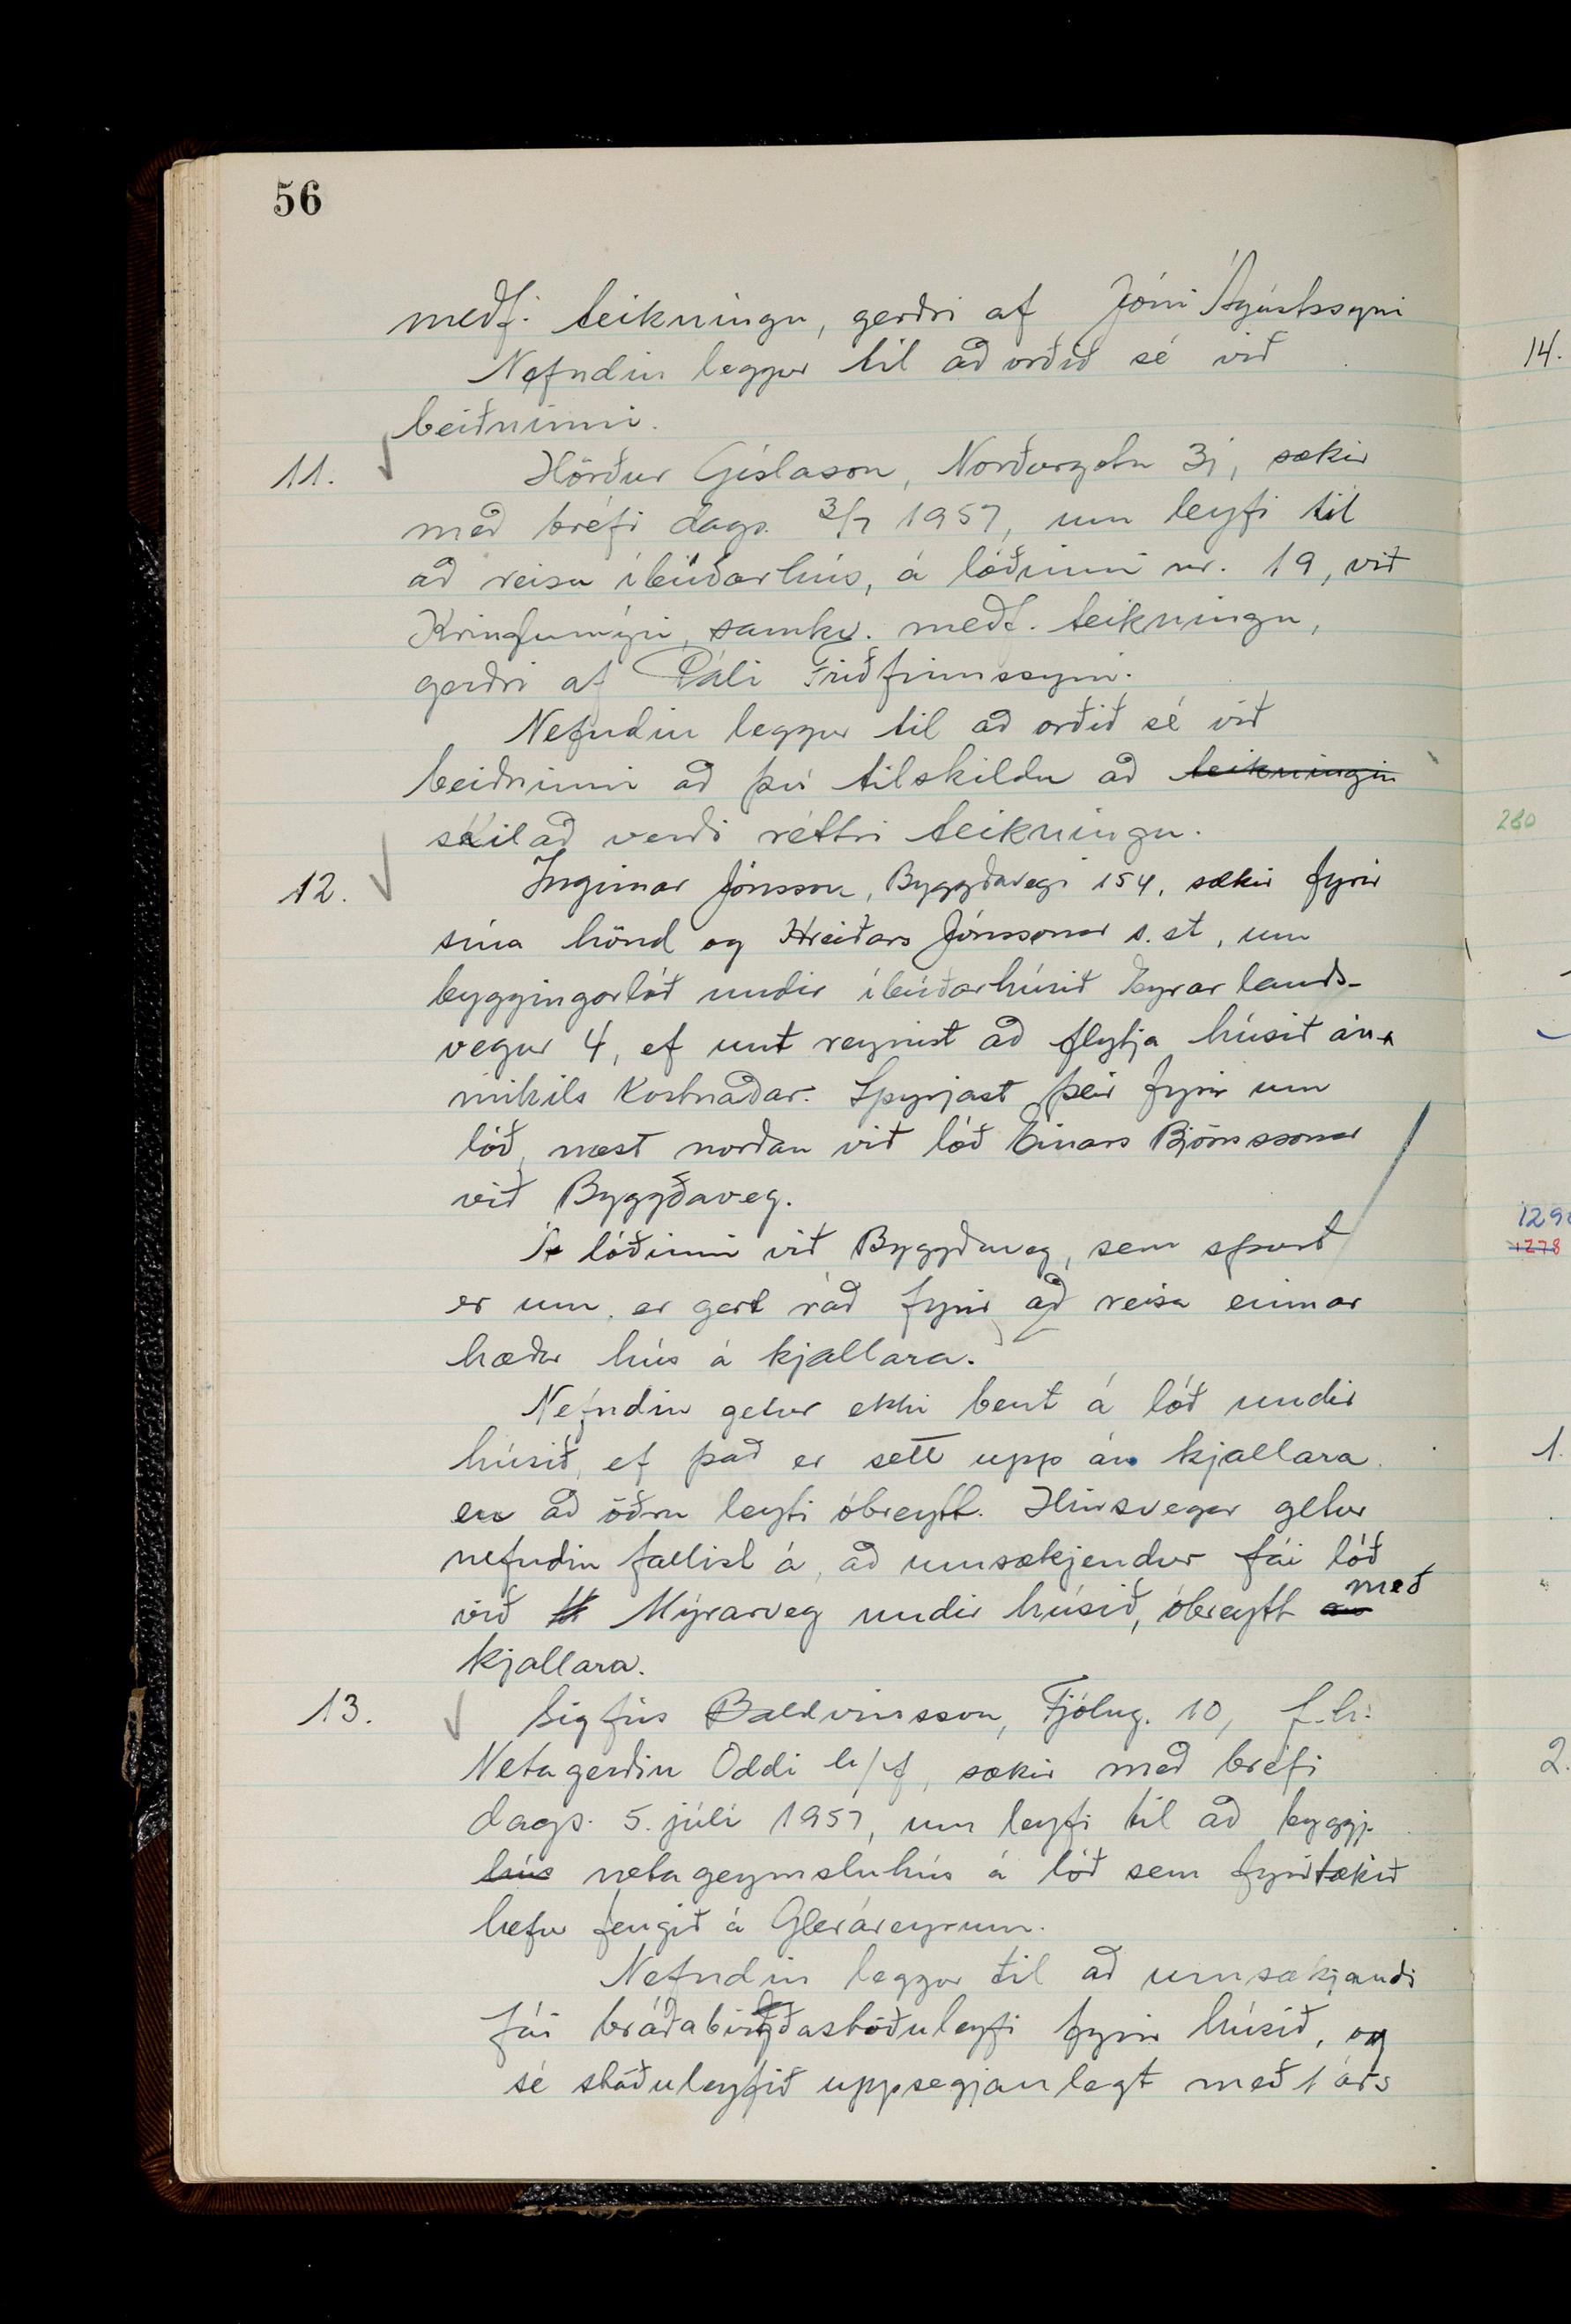 56
meðf. teikningu, gerðri af Jóni Ágústssyni
Nefndin leggur til að orðið sé við
beiðninni.
11. Hörður Gíslason, Norðurgötu 31, sækir
með bréfi dags. 3/7 1957, um leyfi til
að reisa íbúðarhús, á lóðinni nr. 19, við
Kringlumýri, samkv. meðf. teikningu,
gerðri af Páli Friðfinnssyni.
Nefndin leggur til að orðið sé við
beiðninni að því tilskildu að teikningin
skilað verði réttri teikningu.
12. Ingimar Jónsson, Byggðavegi 154, sækir fyrir
sína hönd og Hreiðars Jónssonar s.st, um
byggingarlóð undir íbúðarhúsið Eyrarlands-
vegur 4, ef unt reynist að flytja húsið án
mikils kostnaðar. Spyrjast þeir fyrir um
lóð, næst norðan við lóð Einars Björnssonar
við Byggðaveg.
Á lóðinni við Byggðaveg, sem spurt
er um, er gert ráð fyrir að reisa einnar
hæðar hús á kjallara.
Nefndin getur ekki bent á lóð undir
húsið, ef það er sett upp án kjallara
en að öðru leyti óbreytt. Hinsvegar getur
nefndin fallist á, að umsækjendur fái lóð
við Mýrarveg undir húsið, óbreytt án með
kjallara.
13. Sigfús Baldvinsson, Fjólug. 10, f.h.
Netagerðin Oddi h/f, sækir með bréfi
dags. 5. júlí 1957, um leyfi til að byggja
hús netageymsluhús á lóð sem fyrirtækið
hefur fengið á Gleráreyrum.
Nefndin leggur til að umsækjandi
fái bráðabirgðastöðuleyfi fyrir húsið, og
sé stöðuleyfið uppsegjanlegt með 1 árs
14.
280
1278
1.
2.